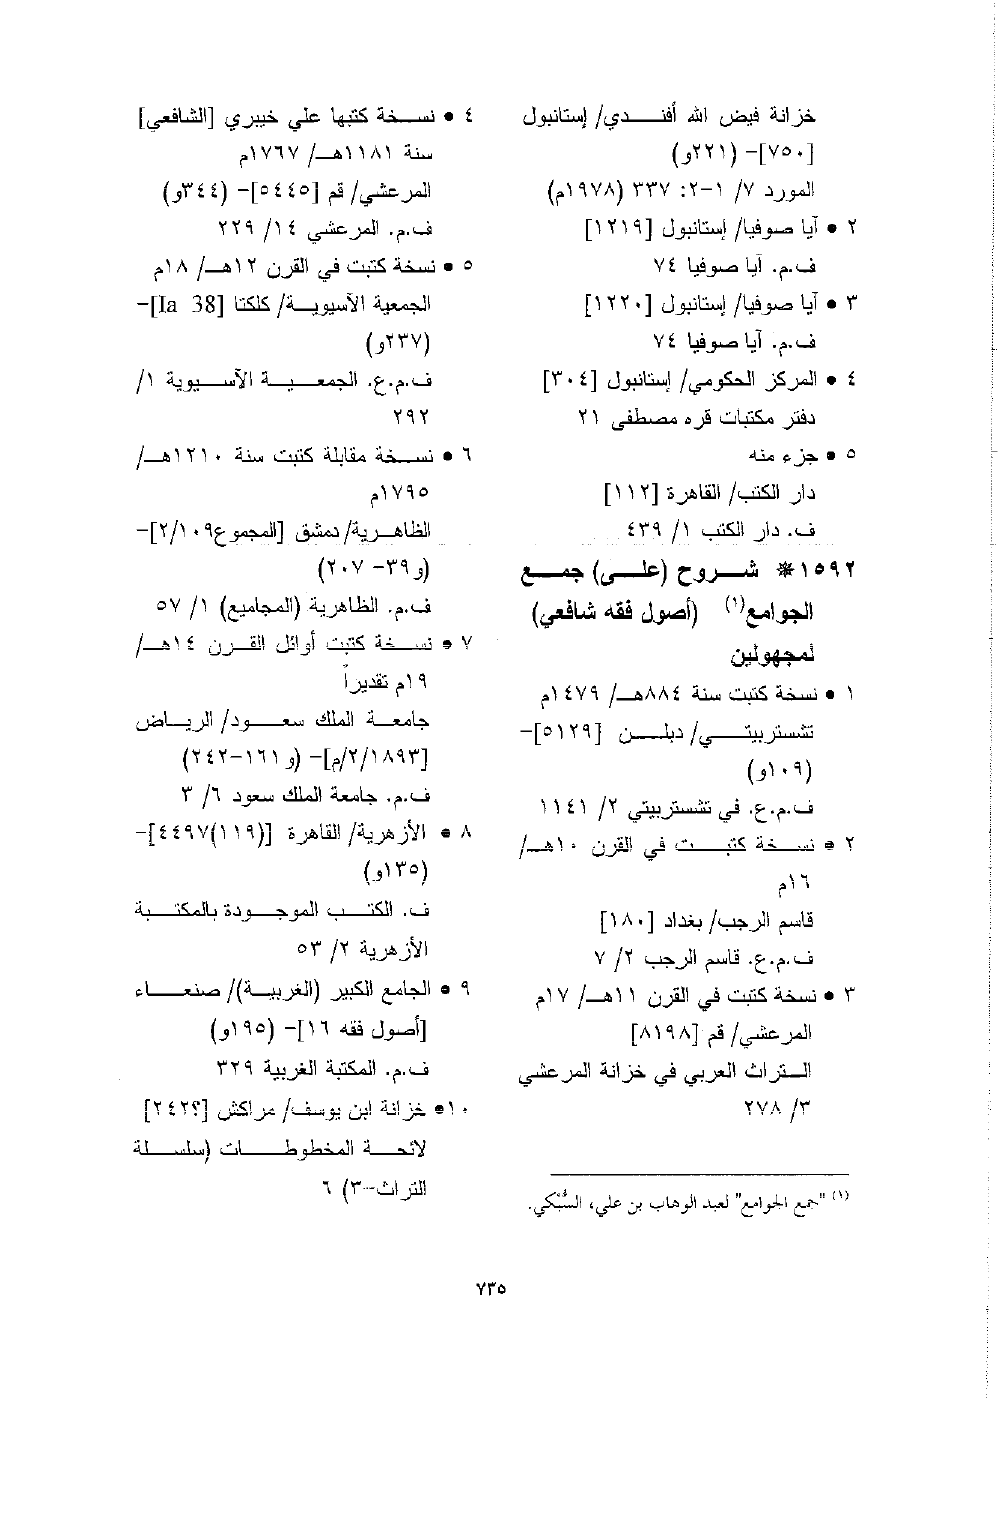 خزانة فيض الله أفندي/ إستانبول
[٧٥٠]- (٢٢١و)
المورد ٧/ ١-٢: ٣٣٧ (١٩٧٨م)
٢ • آيا صوفيا/ إستانبول [١٢١٩]
ف.م. آيا صوفيا ٧٤
٣ • آيا صوفيا/ إستانبول [١٢٢٠]
ف.م. آيا صوفيا ٧٤
٤ • المركز الحكومي/ إستانبول [٣٠٤]
دفتر مكتبات قره مصطفى ٢١
٥ • جزء منه
دار الكتب/ القاهرة [١١٢]
ف. دار الكتب ١/ ٤٣٩
١٥٩٢* شروح (على) جمع
الجوامع(١) (أصول فقه شافعي)
لمجهولين
١ • نسخة كتبت سنة ٨٨٤هـ/ ١٤٧٩م
تشستربيتي/ دبلن [٥١٢٩]-
(١٠٩و)
ف.م.ع. في تشستربيتي ٢/ ١١٤١
٢ • نسخة كتبت في القرن ١٠هـ/
١٦م
قاسم الرجب/ بغداد [١٨٠]
ف.م.ع. قاسم الرجب ٢/ ٧
٣ • نسخة كتبت في القرن ١١هـ/ ١٧م
المرعشي/ قم [٨١٩٨]
التراث العربي في خزانة المرعشي
٣/ ٢٧٨
(١) "جمع الجوامع" لعبد الوهاب بن علي، السُّبْكي.
٤ • نسخة كتبها علي خيبري [الشافعي]
سنة ١١٨١هـ/ ١٧٦٧م
المرعشي/ قم [٥٤٤٥]- (٣٤٤و)
ف.م. المرعشي ١٤/ ٢٢٩
٥ • نسخة كتبت في القرن ١٢هـ/ ١٨م
الجمعية الآسيوية/ كلكتا [Ia 38]-
(٢٣٧و)
ف.م.ع. الجمعية الآسيوية ١/
٢٩٢
٦ • نسخة مقابلة كتبت سنة ١٢١٠هـ/
١٧٩٥م
الظاهرية/ دمشق [المجموع٢/١٠٩]-
(و٣٩- ٢٠٧)
ف.م. الظاهرية (المجاميع) ١/ ٥٧
٧ • نسخة كتبت أوائل القرن ١٤هـ/
١٩م تقديراً
جامعة الملك سعود/ الرياض
[٢/١٨٩٣/م]- (و١٦١-٢٤٢)
ف.م. جامعة الملك سعود ٦/ ٣
٨ • الأزهرية/ القاهرة [(١١٩)٤٤٩٧]-
(١٣٥و)
ف. الكتب الموجودة بالمكتبة
الأزهرية ٢/ ٥٣
٩ • الجامع الكبير (الغربية)/ صنعاء
[أصول فقه ١٦]- (١٩٥و)
ف.م. المكتبة الغربية ٣٢٩
١٠• خزانة ابن يوسف/ مراكش [٢٤٢؟]
لائحة المخطوطات (سلسلة
التراث-٣) ٦
٧٣٥